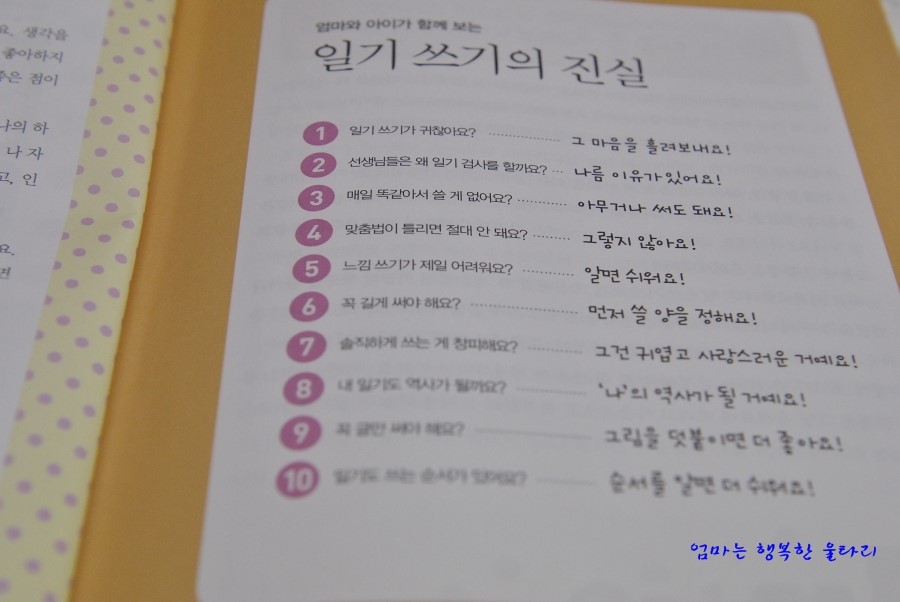 요. 생각을
좋아하지
좋은 점이
나의 하
나 자
고, 인
요.
면
엄마와 아이가 함께 보는
일기 쓰기의 진실
1 일기 쓰기가 귀찮아요? 그 마음을 흘려보내요!
2 선생님들은 왜 일기 검사를 할까요? 나름 이유가 있어요!
3 매일 똑같아서 쓸 게 없어요? 아무거나 써도 돼요!
4 맞춤법이 틀리면 절대 안 돼요? 그렇지 않아요!
5 느낌 쓰기가 제일 어려워요? 알면 쉬워요!
6 꼭 길게 써야 해요? 먼저 쓸 양을 정해요!
7 솔직하게 쓰는 게 창피해요? 그건 귀엽고 사랑스러운 거예요!
8 내 일기도 역사가 될까요? '나'의 역사가 될 거예요!
9 꼭 글만 써야 해요? 그림을 덧붙이면 더 좋아요!
10 일기도 쓰는 순서가 있어요? 순서를 알면 더 쉬워요!
엄마는 행복한 울타리